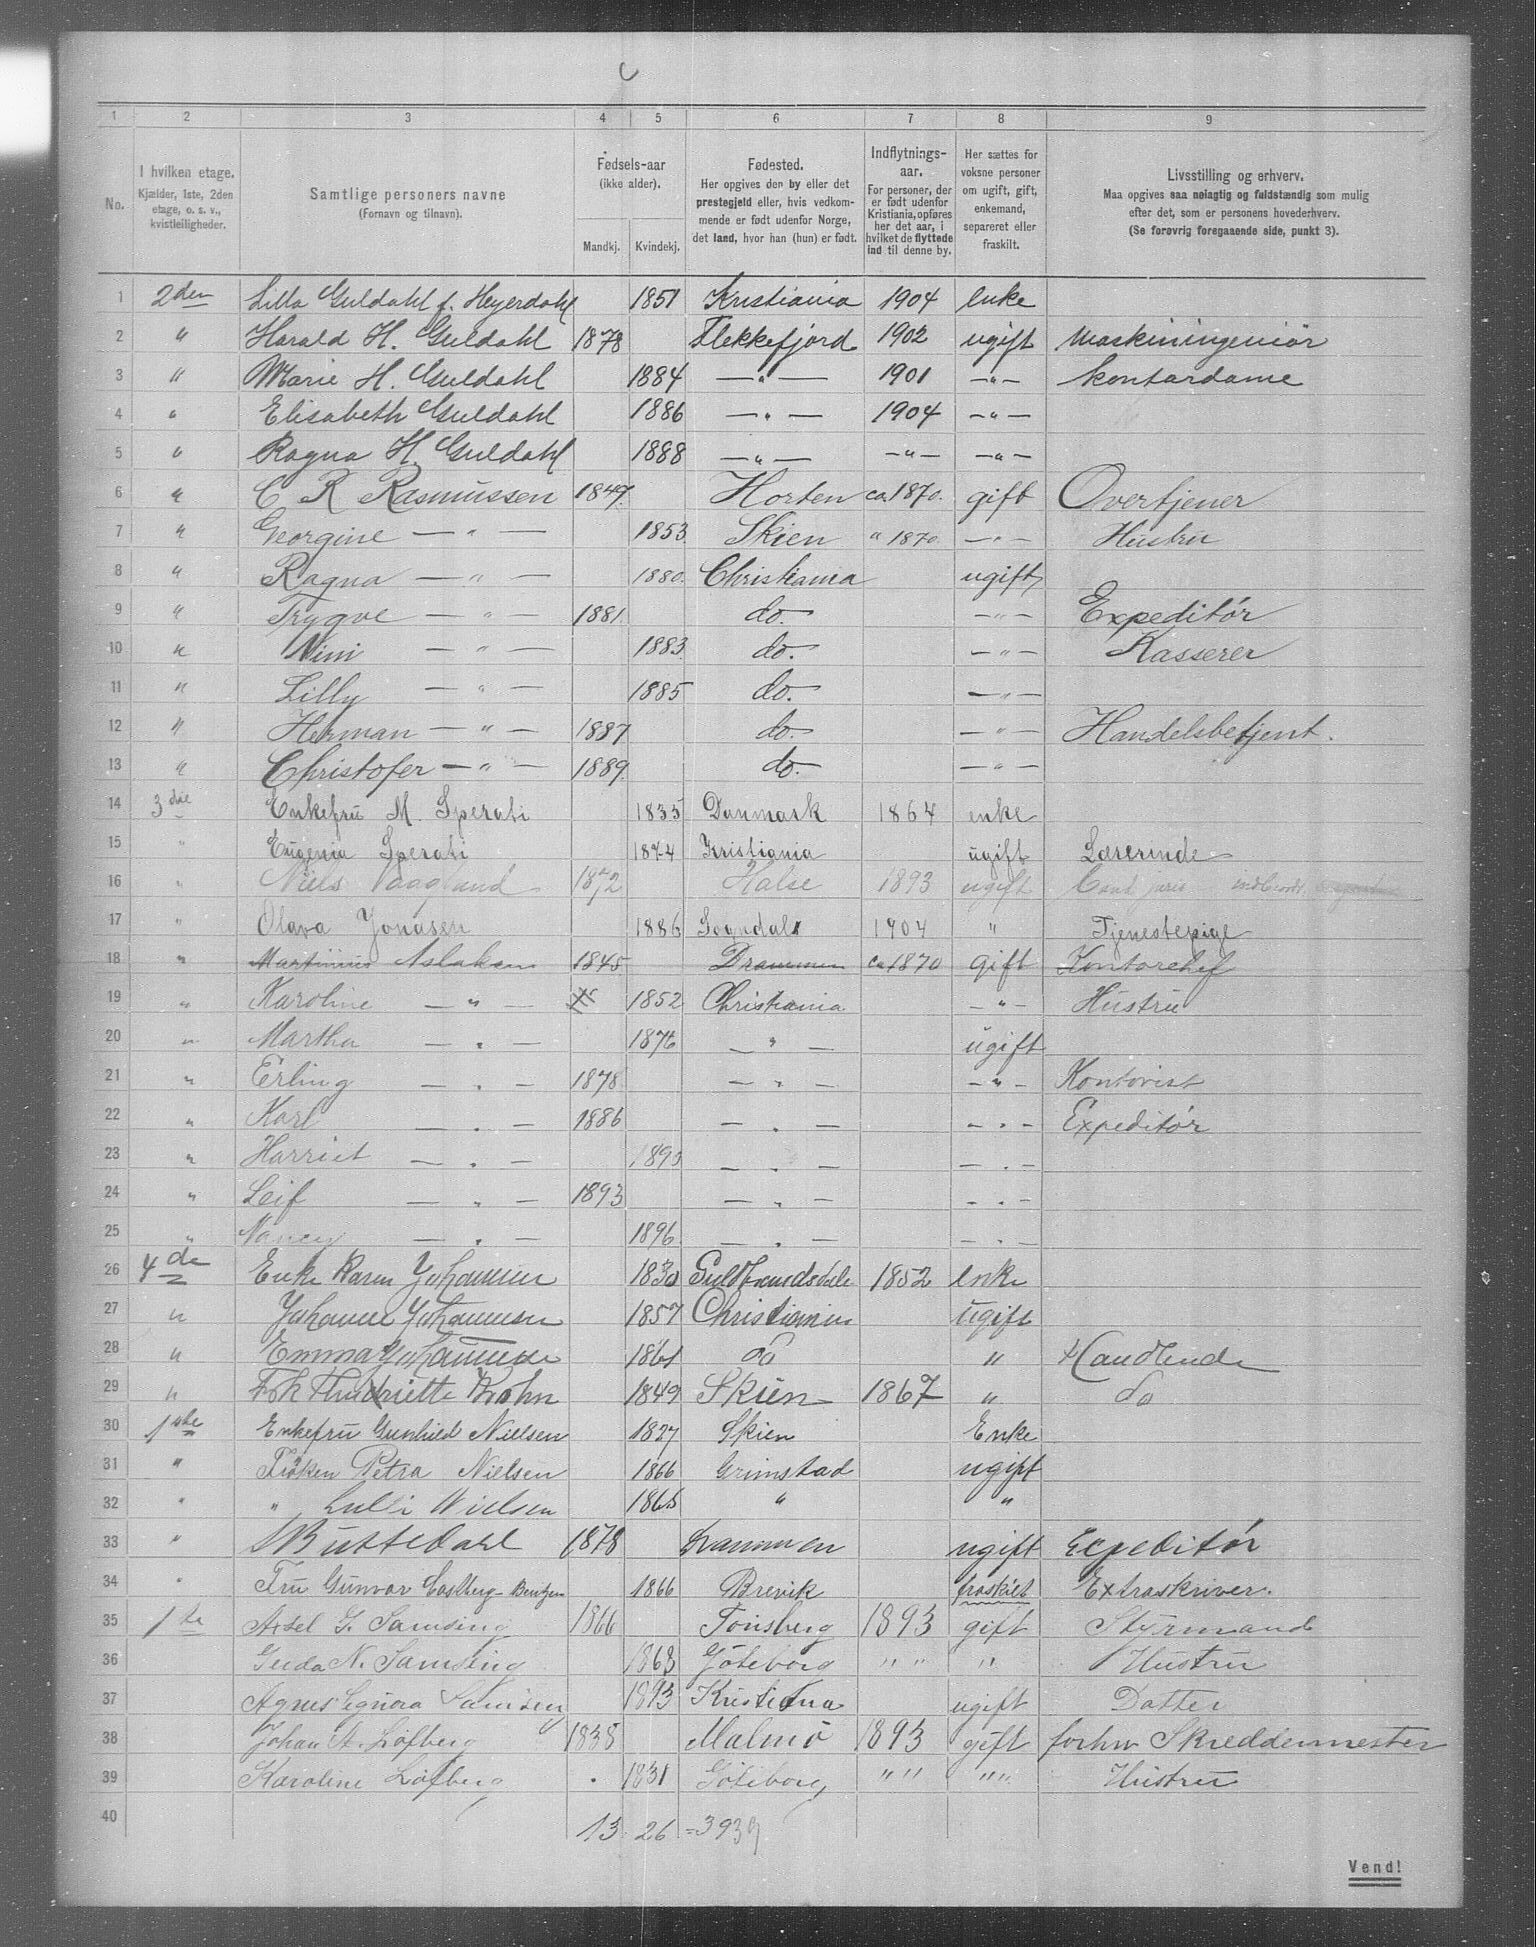 1 2 3 4 5 6 7 8 9
No.
I hvilken etage.
Kjælder, 1ste, 2den
etage, o. s. v.,
kvistleiligheder.
Samtlige personers navne
(Fornavn og tilnavn).
Fødsels-aar
(ikke alder).
Mandkj. Kvindekj.
Fødested.
Her opgives den by eller det
prestegjeld eller, hvis vedkom-
mende er født udenfor Norge,
det land, hvor han (hun) er født.
Indflytnings-
aar.
For personer, der
er født udenfor
Kristiania, opføres
her det aar, i
hvilket de flyttede
ind til denne by.
Her sættes for
voksne personer
om ugift, gift,
enkemand,
separeret eller
fraskilt.
Livsstilling og erhverv.
Maa opgives saa nøiagtig og fuldstændig som mulig
efter det, som er personens hovederhverv.
(Se forøvrig foregaaende side, punkt 3).
1 2den Lilla Guldahl f. Heyerdahl 1851 Kristiania 1904 enke
2 " Harald H. Guldahl 1878 Flekkefjord 1902 ugift Maskiningeniør
3 " Marie H. Guldahl 1884 — " — 1901 — " — Kontordame
4 " Elisabeth Guldahl 1886 — " — 1904 — " —
5 " Ragna H. Guldahl 1888 — " — — " — — " —
6 " C R Rasmussen 1847. Horten ca. 1870. gift Overtjener
7 " Georgine — " — 1853 Skien " 1870 — " — Hustru
8 " Ragna — " — 1880. Christiania ugift
9 " Trygve — " — 1881 do. — " — Expeditør
10 " Nini — " — 1883 do. — " — Kasserer
11 " Lilly — " — 1885 do. — " —
12 " Herman — " — 1887 do. — " — Handelsbetjent.
13 " Christofer — " — 1889 do. — " —
14 3die Enkefru M. Sperati 1835 Danmark 1864 enke
15 " Eugenia Sperati 1874 Kristiania ugift Lærerinde
16 " Niels Vaagland 1872 Halse 1893 ugift Cand juris
17 " Olava Jonasen 1886 Sogndal 1904 " Tjenestepige
18 " Martinius Aslaksen 1845 Drammen ca 1870 gift Kontorchef
19 " Karoline — " — 1852 Christiania — " — Hustru
20 " Martha — " — 1876 — " — ugift
21 " Erling — " — 1878 — " — — " — Kontorist
22 " Karl — " — 1886 — " — — " — Expeditør
23 " Harriet — " — 1893 — " — — " —
24 " Leif — " — 1893 — " — — " —
25 " Nancy — " — 1896 — " — — " —
26 4de Enke Karen Johannesen 1830 Guldbrandsdale 1852 enke
27 " Johanne Johannesen 1857 Christiania ugift
28 " Emma Johannesen 1861 do " Handlende
29 " Frk Hendriette Krohn 1849 Skien 1867 " do
30 1ste Enkefru Gunhild Nielsen 1827 Skien Enke
31 " Frøken Petra Nielsen 1866 Grimstad ugift
32 " " Lulli Nielsen 1868 " "
33 " 1878 Drammen ugift Expeditør
34 " Fru Gunvor Castberg-Bentzen 1866 Brevik fraskilt Extraskriver.
35 1ste Axel G. Samsing 1866 Tønsberg 1893 gift Styrmand
36 Gerda N. Samsing 1868 Göteborg " " " Hustru
37 Agnes Samsing 1893 Kristiania ugift Datter
38 Johan A. Løfberg 1838 Malmö 1893 gift forhv Skreddermester
39 Karoline Løfberg 1831 Göteborg " " " " Hustru
40
13 26 = 39 39
Vend!